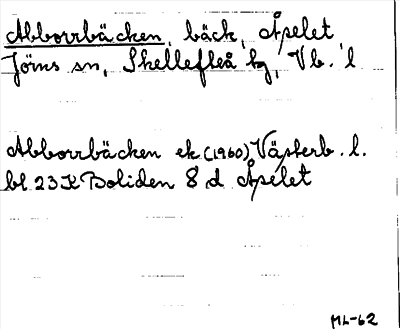 Abborrbäcken, bäck, Åpelet
Jörns sn, Skellefteå tg, Vb. l
Abborrbäcken ek (1960) Västerb. l.
bl 23K Boliden 8 d Åpelet
ML-62